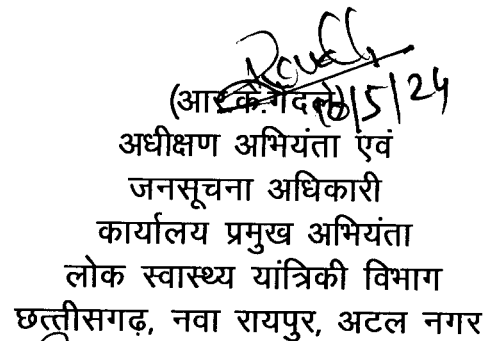 (आर.के.गेंदले)
10/5/24
अधीक्षण अभियंता एवं
जनसूचना अधिकारी
कार्यालय प्रमुख अभियंता
लोक स्वास्थ्य यांत्रिकी विभाग
छत्तीसगढ़, नवा रायपुर, अटल नगर